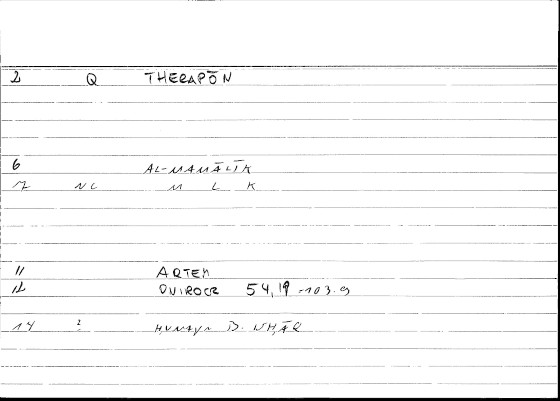 2 Q THERAPŌN
6 AL-MAMĀLĪK
7 NL M L K
11 ARTEM
12 ONIROCR 54,19-103.9
14 ? ḤUNAYN B. ISḤĀQ